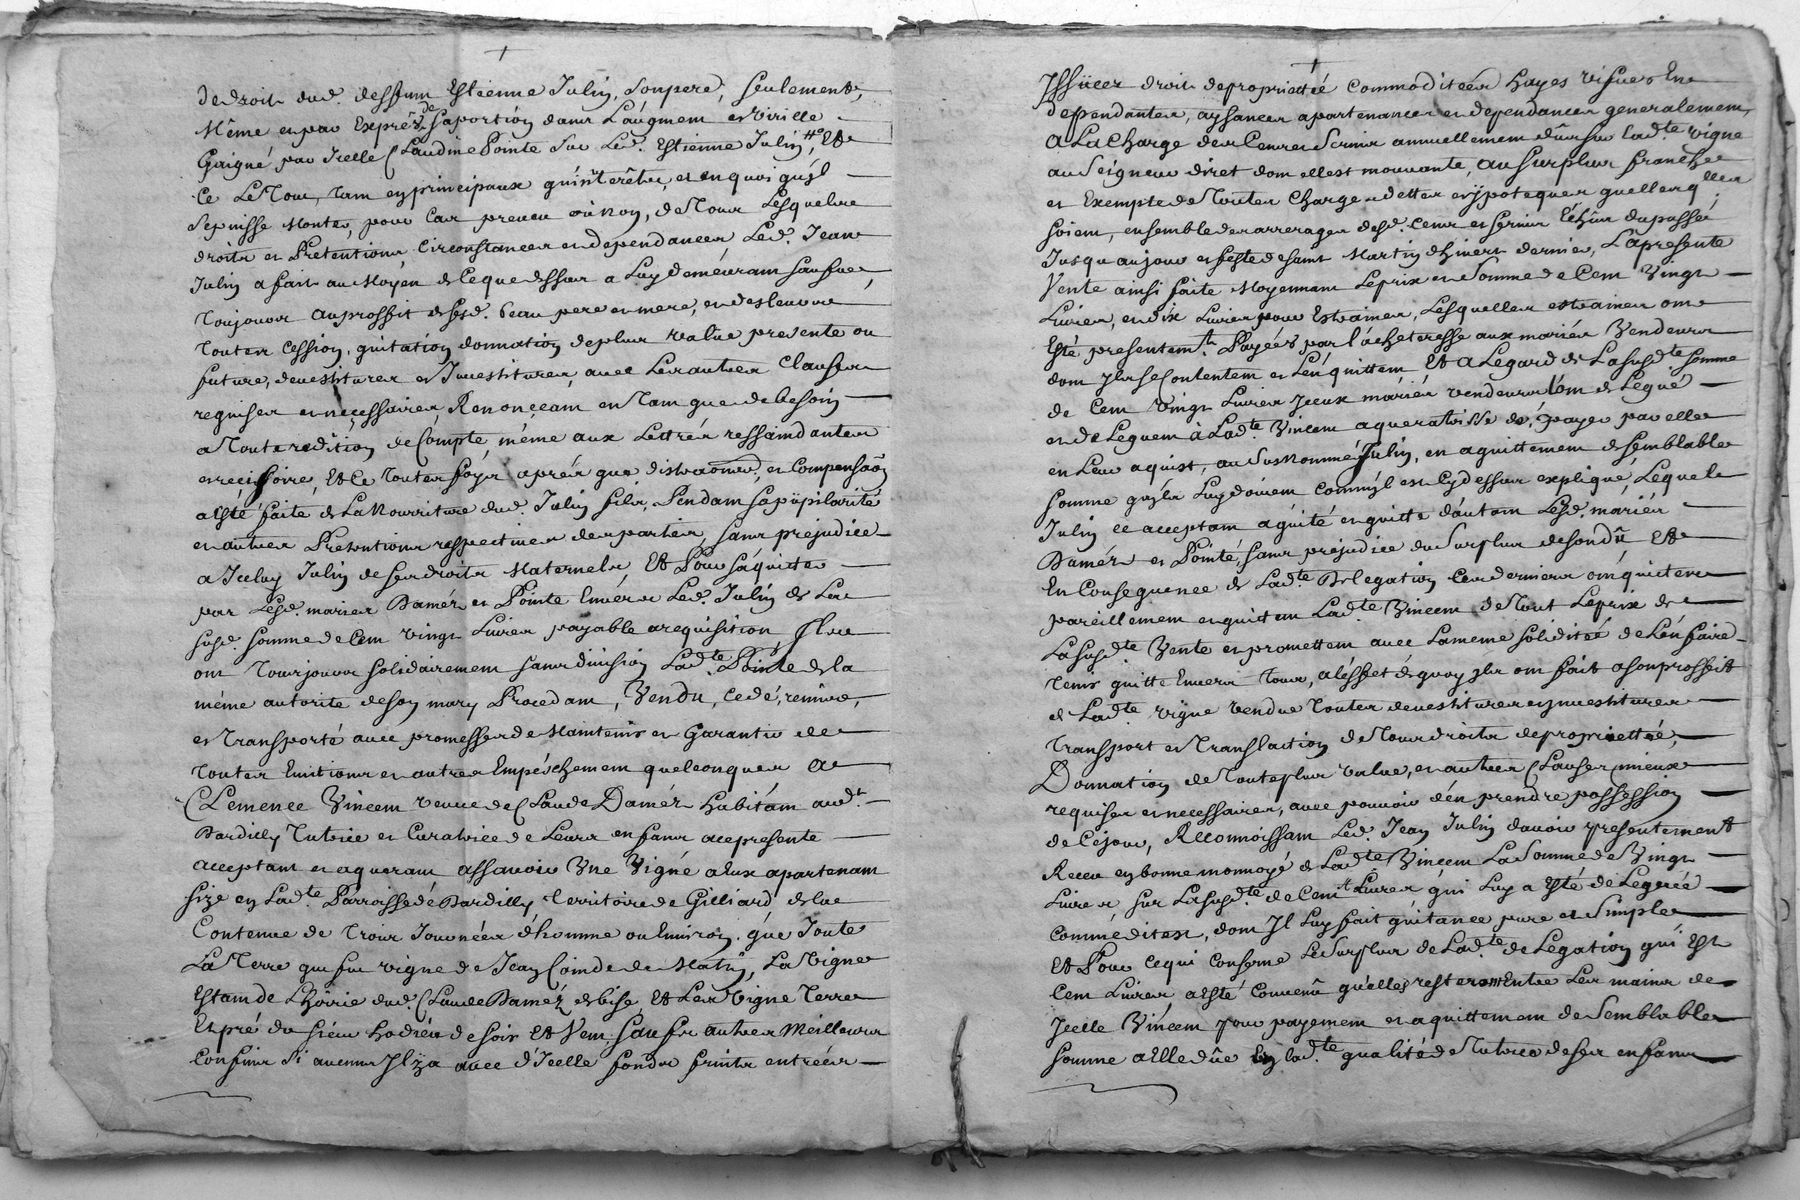 de droit dud. deffunt Estienne Julin, son pere, seulement,
Même et par Exprés de sa portion dans L'augment et Virille
Gaigné par Icelle Claudine Pointe sur Led. Estienne Julin, Et
Ce Le tout, tant en principaux qu'intérêts, et en quoi qu'yl
se puisse Monter, pour Cas preveu où non, de tous Lesquels
droits et Pretentions Circonstances et dependances Led. Jean
Julin a fait au Moyén de Ce que dessus a Luy deméurant sauf
toujours au proffit desd. beau pere et mere,
toutes Cession, quitation donnation de plus value presente ou
future, devestitures et Investitures, avec Les autres Clauses
requises et necessaires, Renonçeant en tant que de besoin
a toute redition de Compte même aux Lettrés
et recisoire, Et Ce toutes foys aprés que et Compensaõn
a esté faite de La Nourriture dud. Julin fils, Pendant sa pupilarité
et autres Pretentions respectives des parties, sans prejudice
a Iceluy Julin de ses droits Maternels Et Pour s'aquitter
par Lesd. mariés Damés et Pointe Envers Led. Julin de La
susd. somme de Cent vingt Livres payable a requisition Ils
ont tousjours solidairement sans division Lad.te Pointe de la
même autorité de son mary Procedant, Vendu, Cedé, remis,
et transporté avec promesses de Maintenir et Garantir de
toutes Evitions et autres Empéschement quelconques a
Clemence Vincent veuve de Claude Daméz habitant aud.t
Dardilly tutrice et Curatrice de Leurs enfans a ce presente
acceptant et aquerant assavoir Une Vigne a Eux apartenant
size en Lad.te Parroisse de Dardilly territoire de Gilliard, de la
Contenue de trois Journées d'homme ou Environ, que Joute
La terre qui fut vigne de Jean Coinde de Matin, La Vigne
Estant de L'hoirie dud. Claude Daméz de bise Et Les Vigne terre
Et pré du sieur hodieu de soir Et Vent Sauf ses autres Meilleurs
Confins Si aucuns Il y a avec d'Icelle fonds fruits entrées
Issües droit de proprietteé Commodités hayes vifues En
dependantes, aysances apartenances et dependances generalement,
A La Charge des Cens et Servis annuellement dûs sur Lad.te vigne
au Seigneur diret dont elle est mouvante, au surplus franche
et Exempte de toutes Charge dettes et ypoteques quelles q.lles
soient, ensemble des arrerages desd. Cens et Servis Échûs du passé
Jusqu au jour et feste de Saint Martin d'hivert dernier, La presente
Vente ainsi faite Moyennant Le prix et Somme de Cent Vingt
Livres, et dix Livres pour Estraines, Lesquelles estraines ont
Esté presentem.t Payéés par L'acheteresse aux mariés Vendeurs
dont Ils se Contentent et L'en quittent Et A Legard de La susd.te somme
de Cent Vingt Livres Iceux mariés vendeurs L'ont de Legué
et de Leguent à Lad.te Vincent aqueratrisse de, payer par elle
en Leur aquist, au susnommé Julin, en aquittement de semblable
somme qu'yls Luy doivent Comm'yl est Cy dessus expliqué, Lequel
Julin ce acceptant a quité et quitte d'autant Lesd. mariés
Damés et Pointe, sans prejudice du Surplus de son dû Et
En Consequence de Lad.te Delegation Ces derniers ont quité
pareillement et quitent Lad.te Vincent de tout Le prix de
La susd.te Vente et promettent avec La meme soliditeé de L'en faire
tenir quitte Envers tous, a l'effet de quoy Ils ont fait a son proffit
de Lad.te vigne vendue toutes devestitures et Investitures
transport et translaction de tous droits de proprietteé,
Donnation de toute plus value, et autres Clauses mieux
requises et necessaires, avec pouvoir d'en prendre possession
de Céjour, Reconnoissant Led. Jean Julin d'avoir presentement
Receu en bonne monnoyé de Lad.te Vincent La Somme de Vingt
Livres sur La susd.te de Cent Livres qui Luy a Esté deLeguée
comme dit est, dont Il Luy fait quitance pure et Simple
Et Pour ce qui Conserne Le Surplus de Lad.te deLegation qui Est
Cent Livres a esté Convenû qu'elles resteront Entre Les mains de
Icelle Vincent pour payement et aquittement de Semblable
somme a Elle dûe En lad.te qualité de tutrice de ses enfans